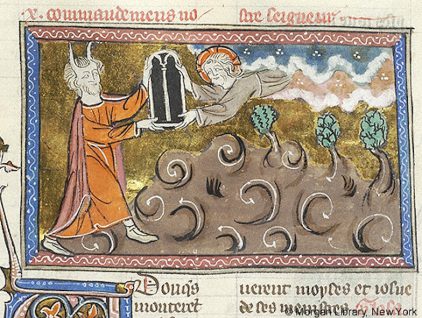 x. commandemens no stre seigneur
Donqs uerent moyses et iosue
monteret de ses menistres
© Morgan Library, New York